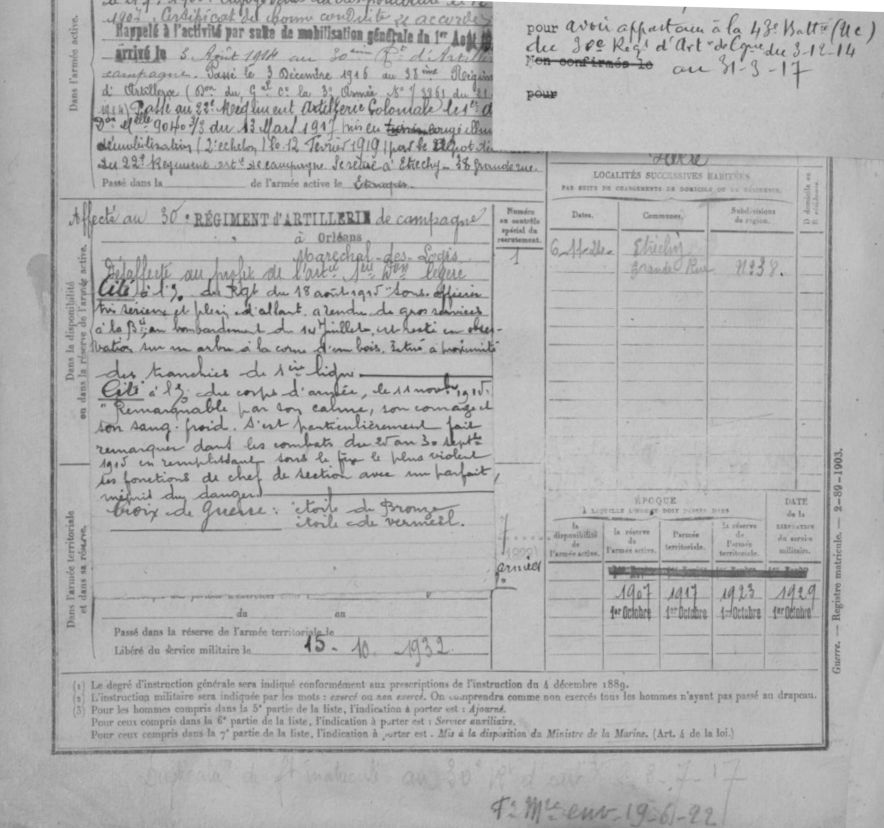 1907. Certificat de bonne conduite accordé
Rappelé à l'activité par suite de mobilisation générale du 1er Août
arrivé le 5 Août 1914 au 30ème Rt d'Artillerie
campagne. Passé le 3 Décembre 1916 au 38ème Régim
d'Artillerie (Don du Gal Ct la 3e Armée No 7
1914) Passé au 22e Régiment Artillerie Coloniale le 1er
Don Mlle 9040 3/3 du 13 Mars 1917 mis en congé illim
démobilisation (2e échelon) le 12 Février 1919 par le dépôt
du 22e Régiment artie de campagne. Se retire à Etrechy 38 Grande rue.
Passé dans la
de l'armée active le
Etampes.
Dans l'armée active.
pour avoir appartenu à la 43e Battie (Uc)
du 30e Régt d'Artie de Cgne du 3-12-14
Non confirmés le
au 31-3-17
pour
Affecté au 30e RÉGIMENT D'ARTILLERIE de campagne
à Orléans
Maréchal-des-Logis
Désaffecté au profit de l'artie
Cité à l'o. du Rgt du 18 août 1915 Sous-officier
très sérieux et plein d'allant, a rendu de gros services
à la Bie, au bombardement du 14 Juillet, est resté en obser-
vation sur un arbre à la corne d'un bois, situé à proximité
des tranchées de 1ère ligne.
Cité à l'o. du corps d'armée, le 11 novbre 1915.
"Remarquable par son calme, son courage et
son sang-froid. S'est particulièrement fait
remarquer dans les combats du 25 au 30 septbre
1915 en remplissant sous le feu le plus violent
les fonctions de chef de section avec un parfait
mépris du danger
Croix de Guerre : étoile de Bronze
étoile de vermeil.
Dans la disponibilité
ou dans la réserve de l'armée active.
Numéro
au contrôle
spécial du
recrutement.
1
LOCALITÉS SUCCESSIVES HABITÉES
PAR SUITE DE CHANGEMENTS DE DOMICILE OU DE RÉSIDENCE.
Dates.
Communes.
Subdivisions
de région.
D domicile ou
R résidence.
Etréchy
Grande Rue
No 38.
ÉPOQUE
À LAQUELLE L'HOMME DOIT PASSER DANS
DATE
de la
LIBÉRATION
du service
militaire.
la
disponibilité
de
l'armée active.
la réserve
de
l'armée active.
l'armée
territoriale.
la réserve
de
l'armée
territoriale.
1907
1917
1923
1929
1er Octobre
1er Octobre
1er Octobre
1er Octobre
Dans l'armée territoriale
et dans sa réserve.
du
en
Passé dans la réserve de l'armée territoriale le
Libéré du service militaire le
15 - 10 - 1932
Guerre. — Registre matricule. — 2-89-1903.
(1) Le degré d'instruction générale sera indiqué conformément aux prescriptions de l'instruction du 4 décembre 1889.
(2) L'instruction militaire sera indiquée par les mots : exercé ou non exercé. On comprendra comme non exercés tous les hommes n'ayant pas passé au drapeau.
(3) Pour les hommes compris dans la 5e partie de la liste, l'indication à porter est : Ajourné.
Pour ceux compris dans la 6e partie de la liste, l'indication à porter est : Service auxiliaire.
Pour ceux compris dans la 7e partie de la liste, l'indication à porter est : Mis à la disposition du Ministre de la Marine. (Art. 4 de la loi.)
au 30e Rt d'art 8-7-17
Fe Mle env. 19-6-22